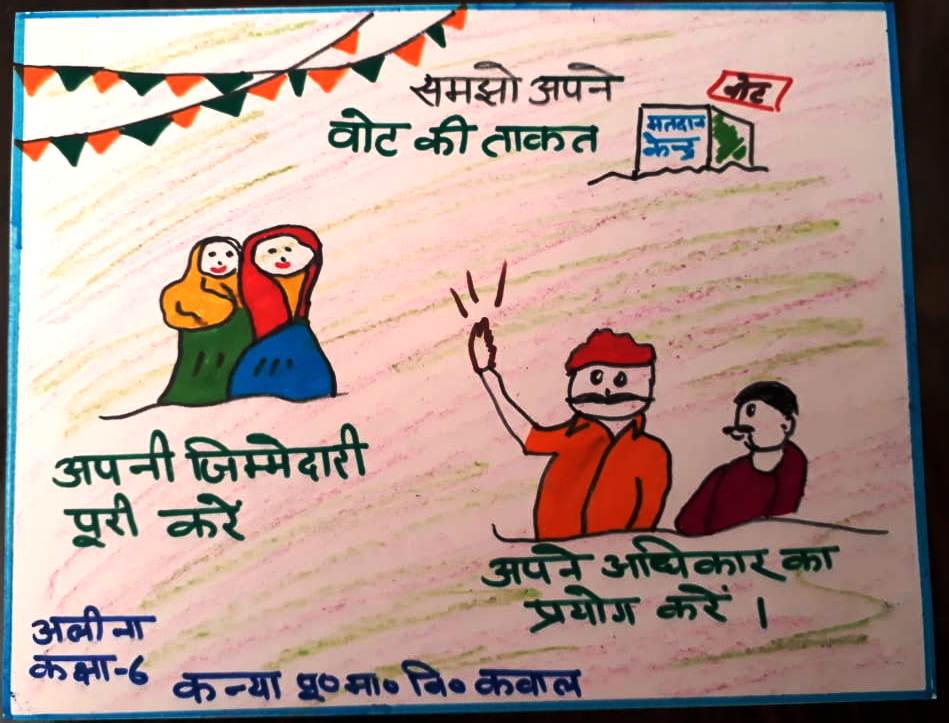 समझो अपने
वोट की ताकत
वोट
मतदान
केन्द्र
अपनी जिम्मेदारी
पूरी करें
अपने अधिकार का
प्रयोग करें ।
अलीना
कक्षा-6
कन्या पू० मा० वि० कवाल